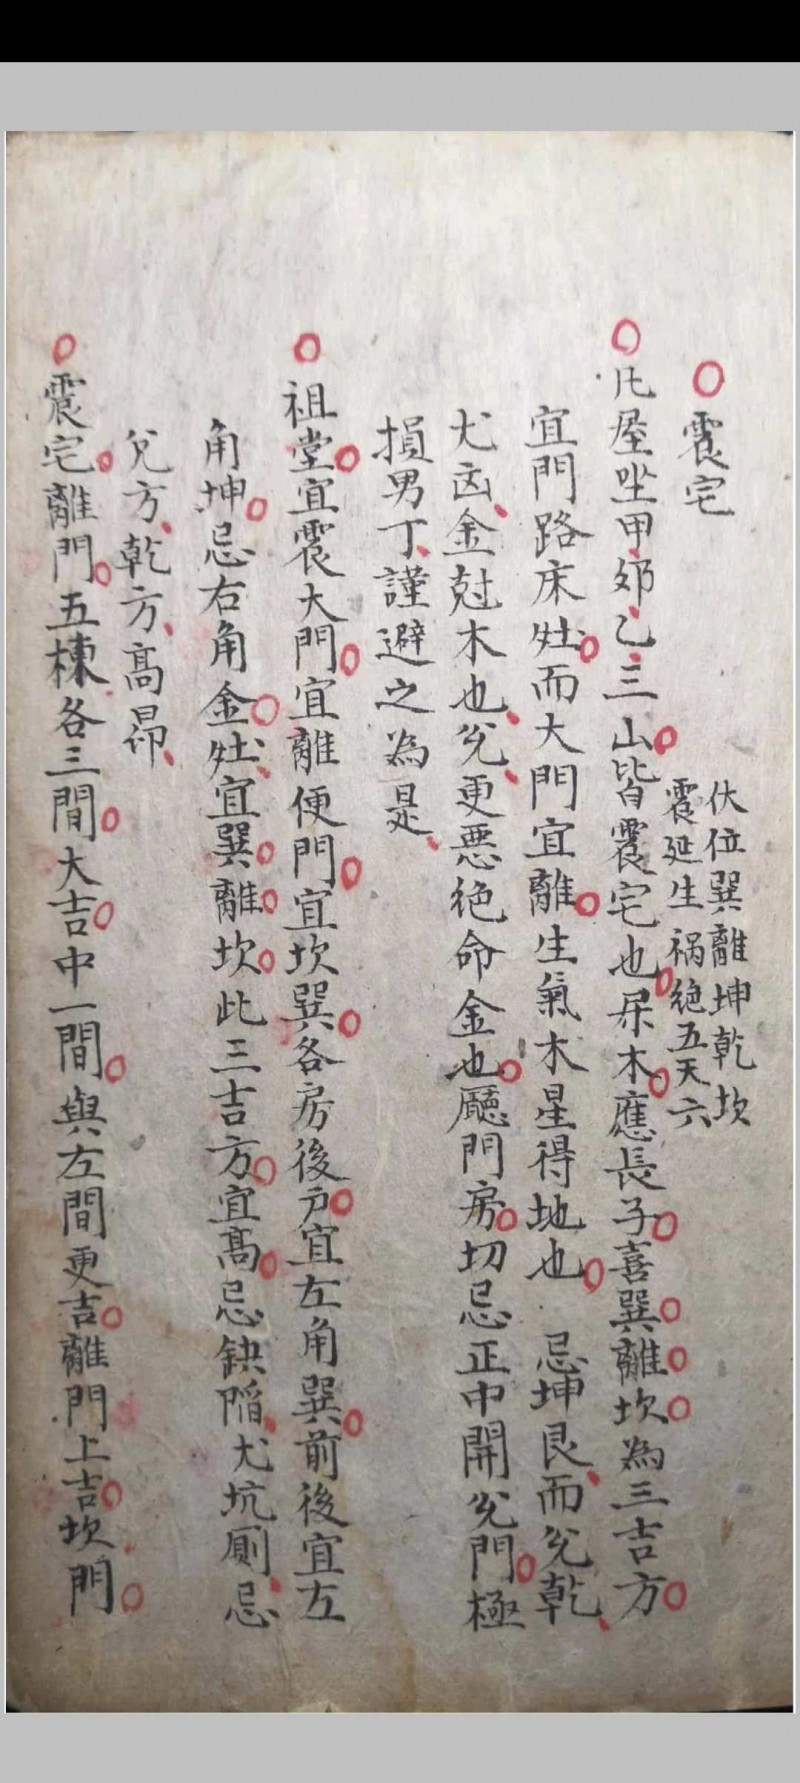 震宅
伏位巽離坤乾坎
震延生禍絶五天六
凡屋坐甲卯乙三山皆震宅也屬木應長子喜巽離坎為三吉方
宜門路床灶而大門宜離生氣木星得地也 忌坤艮而兊乾
尤凶金尅木也兊更惡絶命金也廳門房切忌正中開兊門極
損男丁謹避之為是
祖堂宜震大門宜離便門宜坎巽各房後户宜左角巽前後宜左
角坤忌右角金灶宜巽離坎此三吉方宜高忌缺陷尤坑厠忌
兊方乾方高昂
震宅離門五棟各三間大吉中一間與左間更吉離門上吉坎門